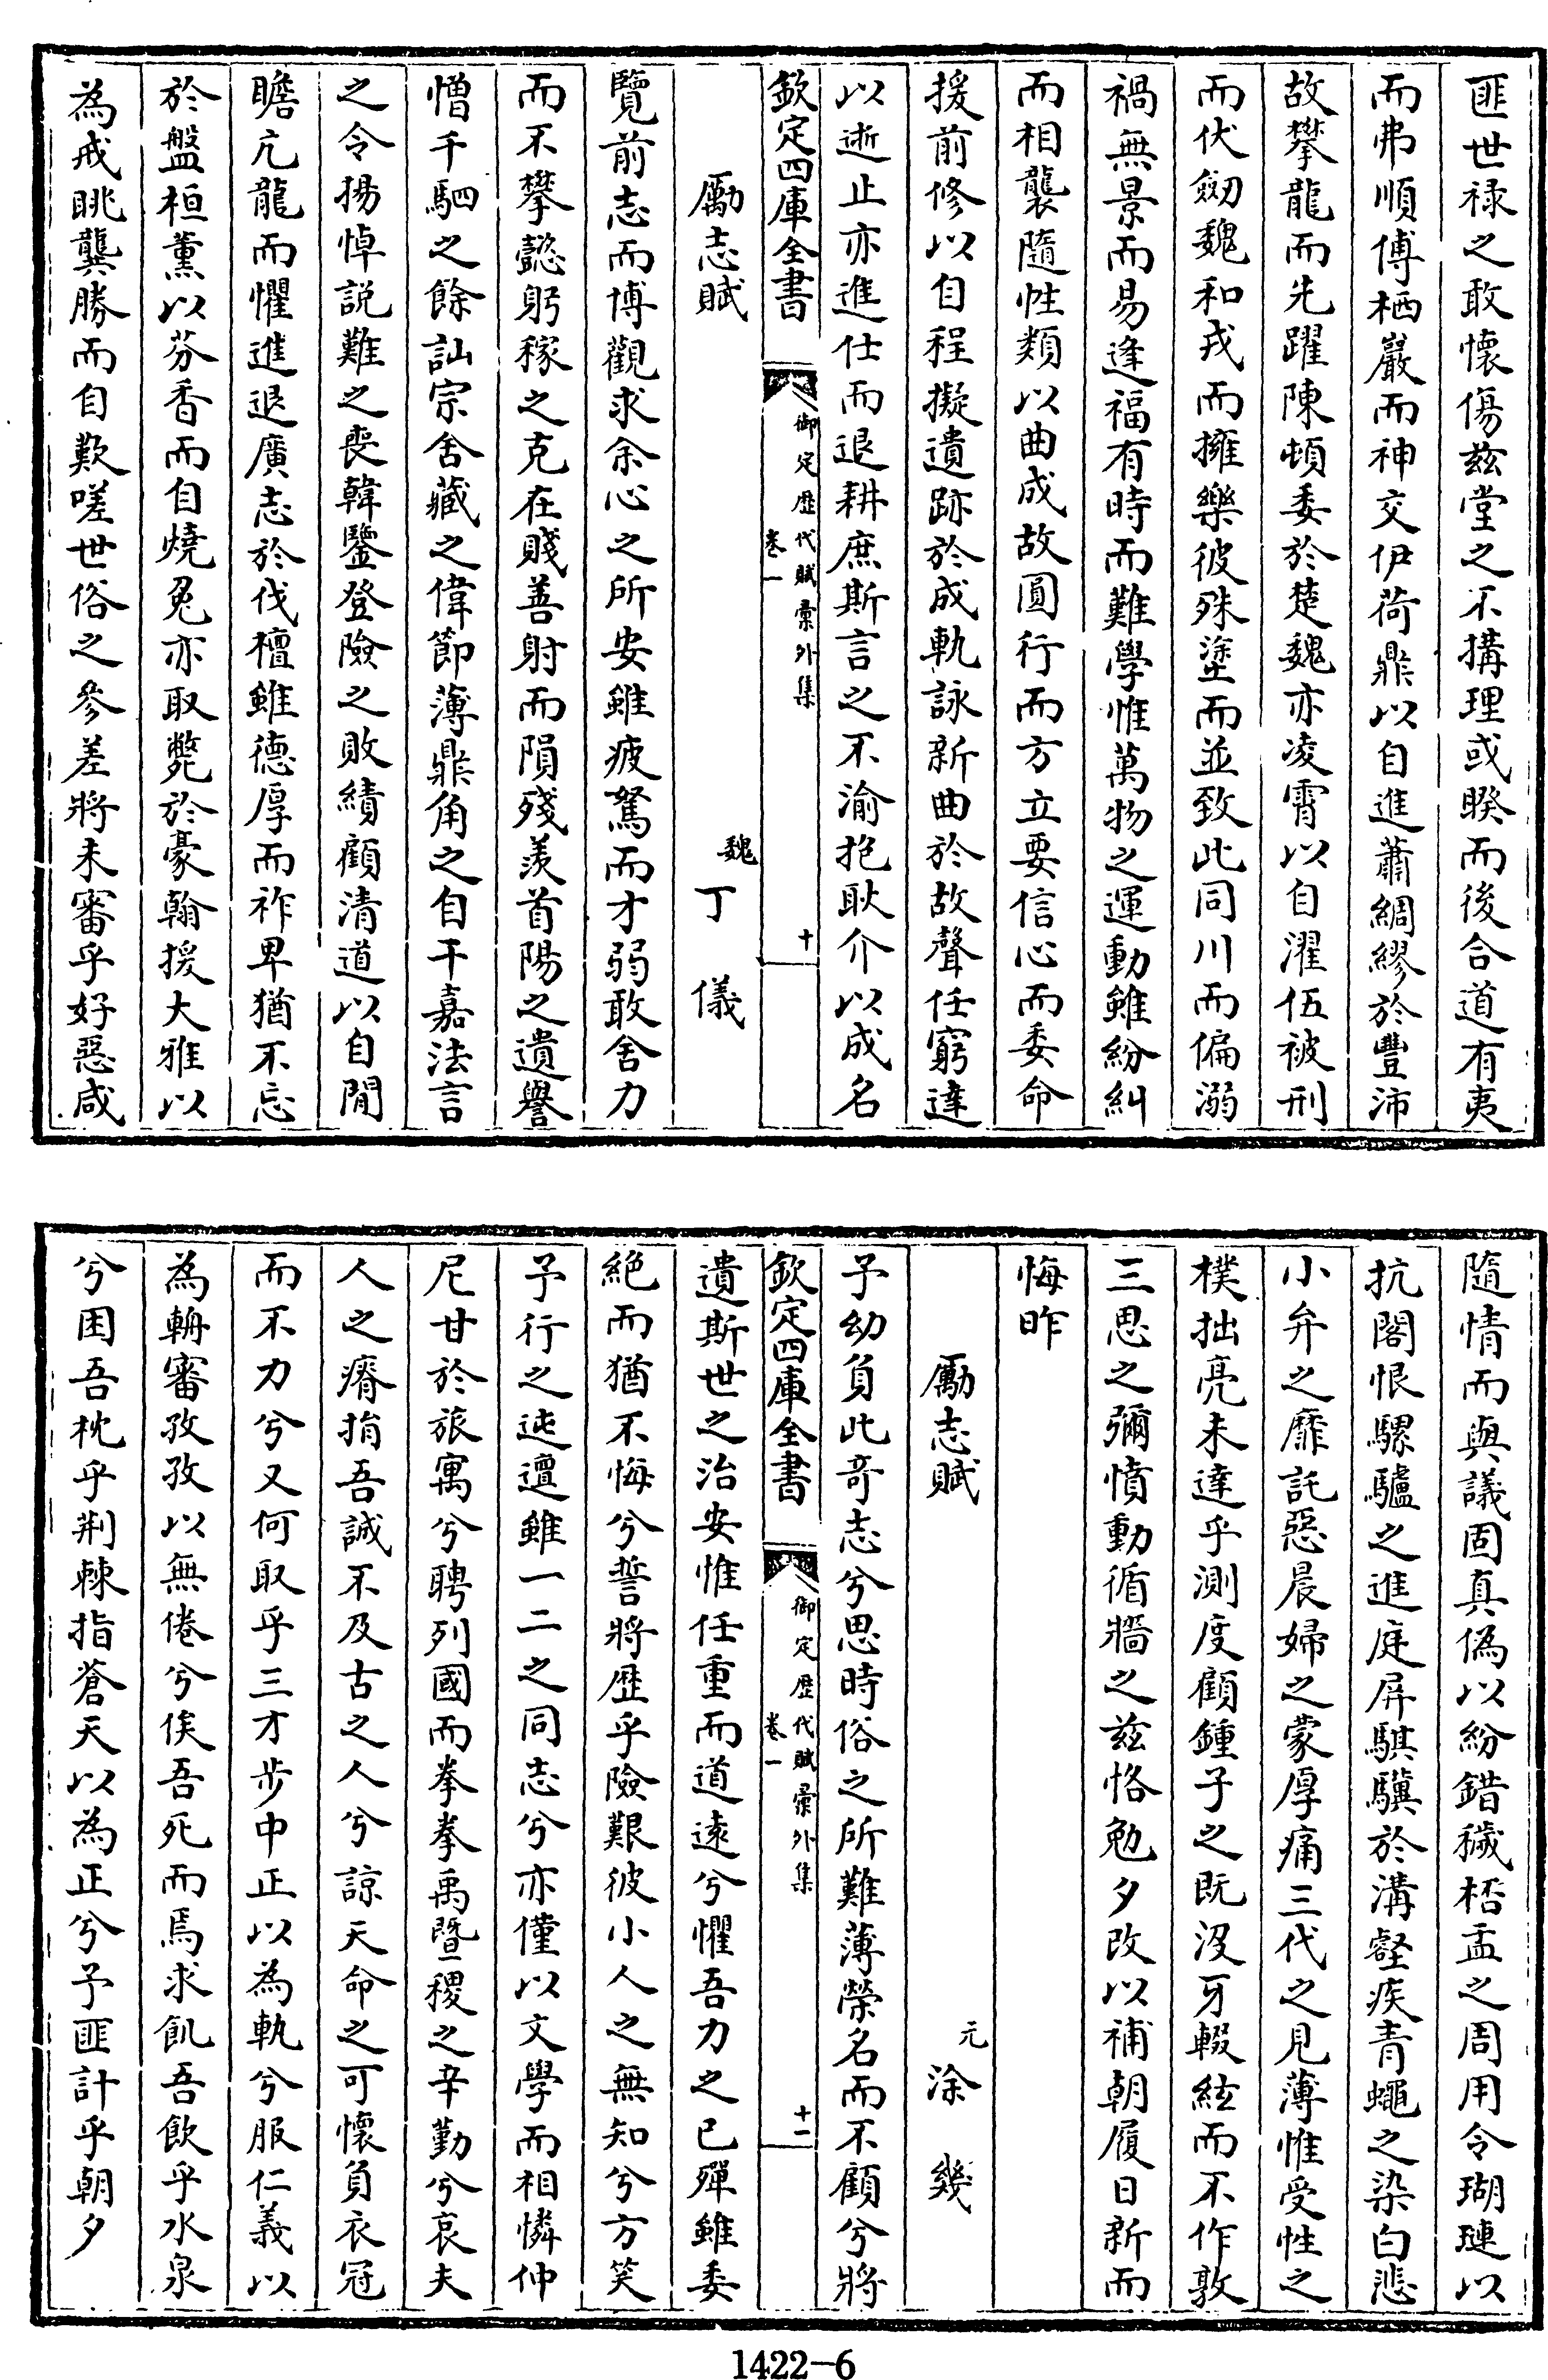 匪世禄之敢懷傷兹堂之不搆理或暌而後合道有夷
而弗順傅栖巖而神交伊荷鼎以自進蕭綢繆於豐沛
故攀龍而先躍陳頓委於楚魏亦凌霄以自濯伍被刑
而伏劒魏和戎而擁樂彼殊塗而並致此同川而偏溺
禍無景而易逢福有時而難學惟萬物之運動雖紛糾
而相襲隨性類以曲成故圓行而方立要信心而委命
援前修以自程擬遺跡於成軌詠新曲於故聲任窮達
以逝止亦進仕而退耕庶斯言之不渝抱耿介以成名
欽定四庫全書
御定歴代賦彙外集
卷一
十
勵志賦
魏丁儀
覽前志而博觀求余心之所安雖疲駑而才弱敢舍力
而不攀懿躬稼之克在賤善射而隕殘羨首陽之遺譽
憎千駟之餘訕宗舍藏之偉節薄鼎角之自干嘉法言
之令揚悼説難之喪韓鑒登險之敗績顧清道以自閒
瞻亢龍而懼進退廣志於伐檀雖德厚而祚卑猶不忘
於盤桓薰以芬香而自燒兔亦取斃於豪翰援大雅以
為戒眺龔勝而自歎嗟世俗之參差將未審乎好惡咸
隨情而與議固真偽以紛錯穢桮盂之周用令瑚璉以
抗閣恨騾驢之進庭屏騏驥於溝壑疾青蠅之染白悲
小弁之靡託惡晨婦之蒙厚痛三代之見薄惟受性之
樸拙亮未達乎測度顧鍾子之既没牙輟絃而不作敦
三思之彌憤動循牆之兹恪勉夕改以補朝履日新而
悔昨
勵志賦
元涂幾
予幼負此奇志兮思時俗之所難薄榮名而不顧兮將
欽定四庫全書
御定歴代賦彙外集
卷一
十一
遺斯世之治安惟任重而道遠兮懼吾力之已殫雖委
絕而猶不悔兮誓將歴乎險艱彼小人之無知兮方笑
予行之迍邅雖一二之同志兮亦僅以文學而相憐仲
尼甘於旅寓兮聘列國而拳拳禹暨稷之辛勤兮哀夫
人之瘠捐吾誠不及古之人兮諒天命之可懷負衣冠
而不力兮又何取乎三才步中正以為軌兮服仁義以
為輈審孜孜以無倦兮俟吾死而焉求飢吾飲乎水泉
兮困吾枕乎荆棘指蒼天以為正兮予匪計乎朝夕
1422—6